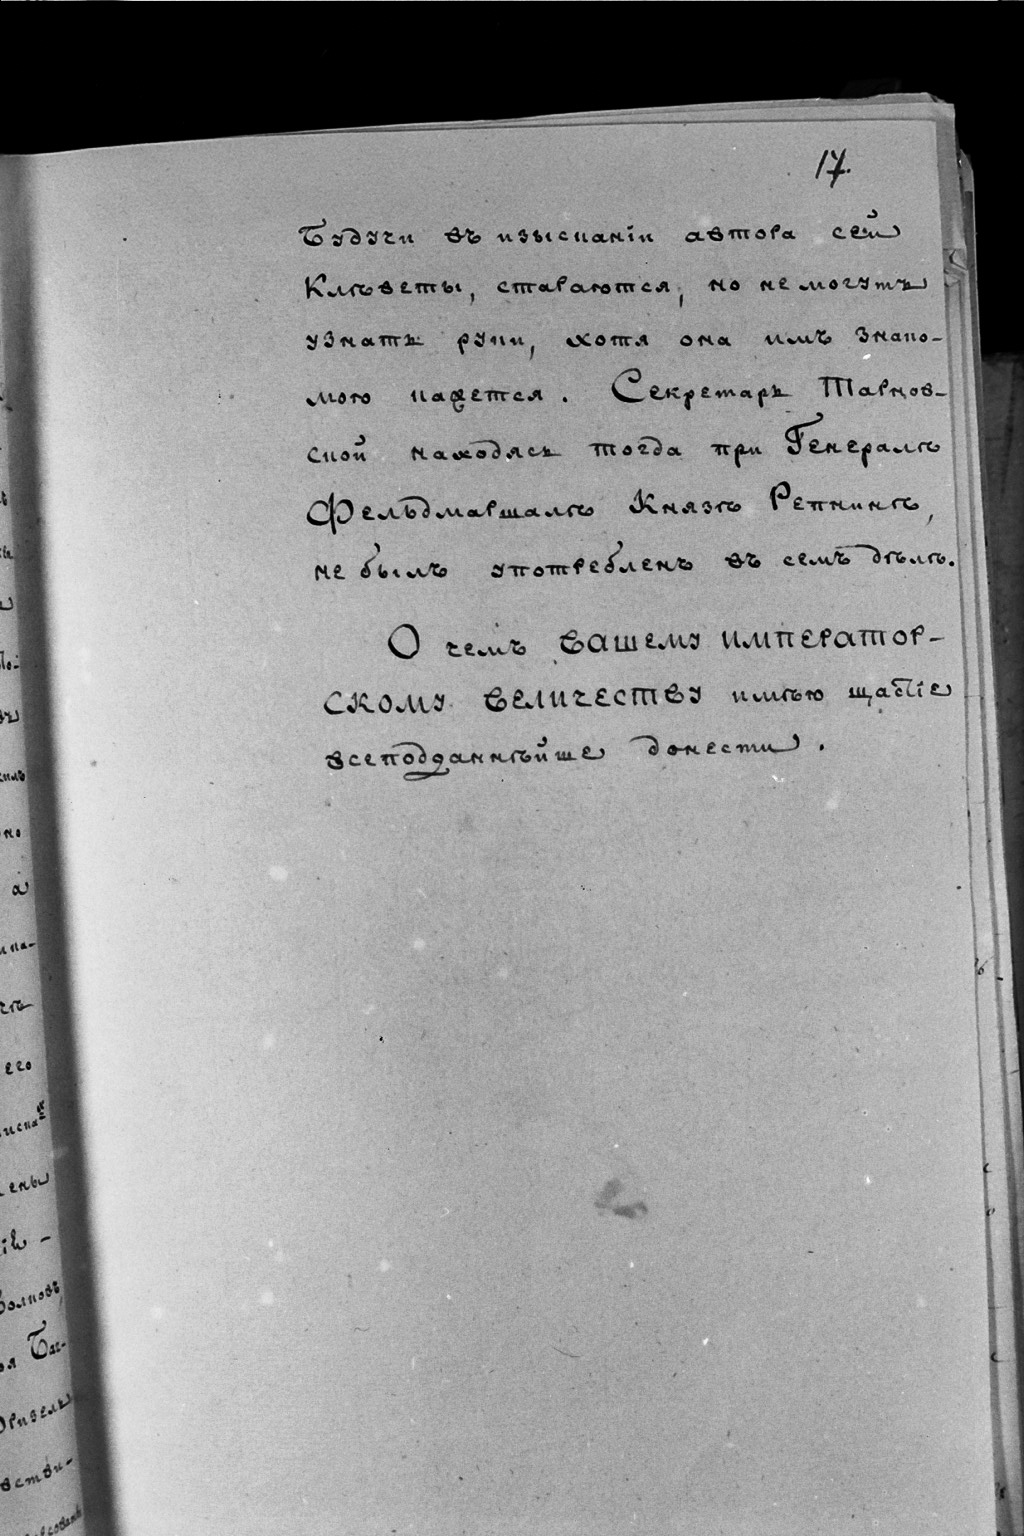 17.
Будучи въ изысканіи автора сей
Клѣветы, стараются, но не могутъ
узнать руки, хотя она имъ знако-
мою кажется. Секретарь Тарнов-
ской находясь тогда при Генералѣ
Фельдмаршалѣ Князѣ Репнинѣ,
не былъ употребленъ въ семъ дѣлѣ.
О чемъ ВАШЕМУ ИМПЕРАТОР-
СКОМУ ВЕЛИЧЕСТВУ имѣю щастіе
всеподданнѣйше донести.